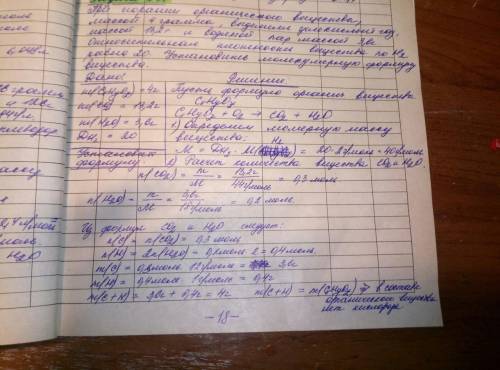 При горании органического вещества,
массой 4 грамма, выделили углекислый газ,
массой 13,2 г и водяной пар массой 3,6 г.
Относительная плотность вещества по H2
равна 20. Установить молекулярную формулу
вещества.
Дано: Решение
m(CxHyOz) = 4г Пусть формула органич вещества
m(CO2) = 13,2г CxHyOz
m(H2O) = 3,6г CxHyOz + O2 → CO2 + H2O
DH2 = 20 1) Определяем молярную массу
вещества: H2
Установить
формулу M = DH2 · M = 20 · 2г/моль = 40г/моль
2) Расчет количества вещества CO2 и H2O
n(CO2) = m/M = 13,2г/44г/моль = 0,3 моль
n(H2O) = m/M = 3,6г/18г/моль = 0,2 моль
Из формул CO2 и H2O следует:
n(C) = n(CO2) = 0,3 моль
n(H) = 2n(H2O) = 0,2моль · 2 = 0,4моль
m(C) = 0,3моль · 12г/моль = 3,6г
m(H) = 0,4моль · 1г/моль = 0,4г
m(C+H) = 3,6г + 0,4г = 4г m(C+H) = m(CxHyOz) ⇒ в составе
органического вещества
нет кислорода
-18-